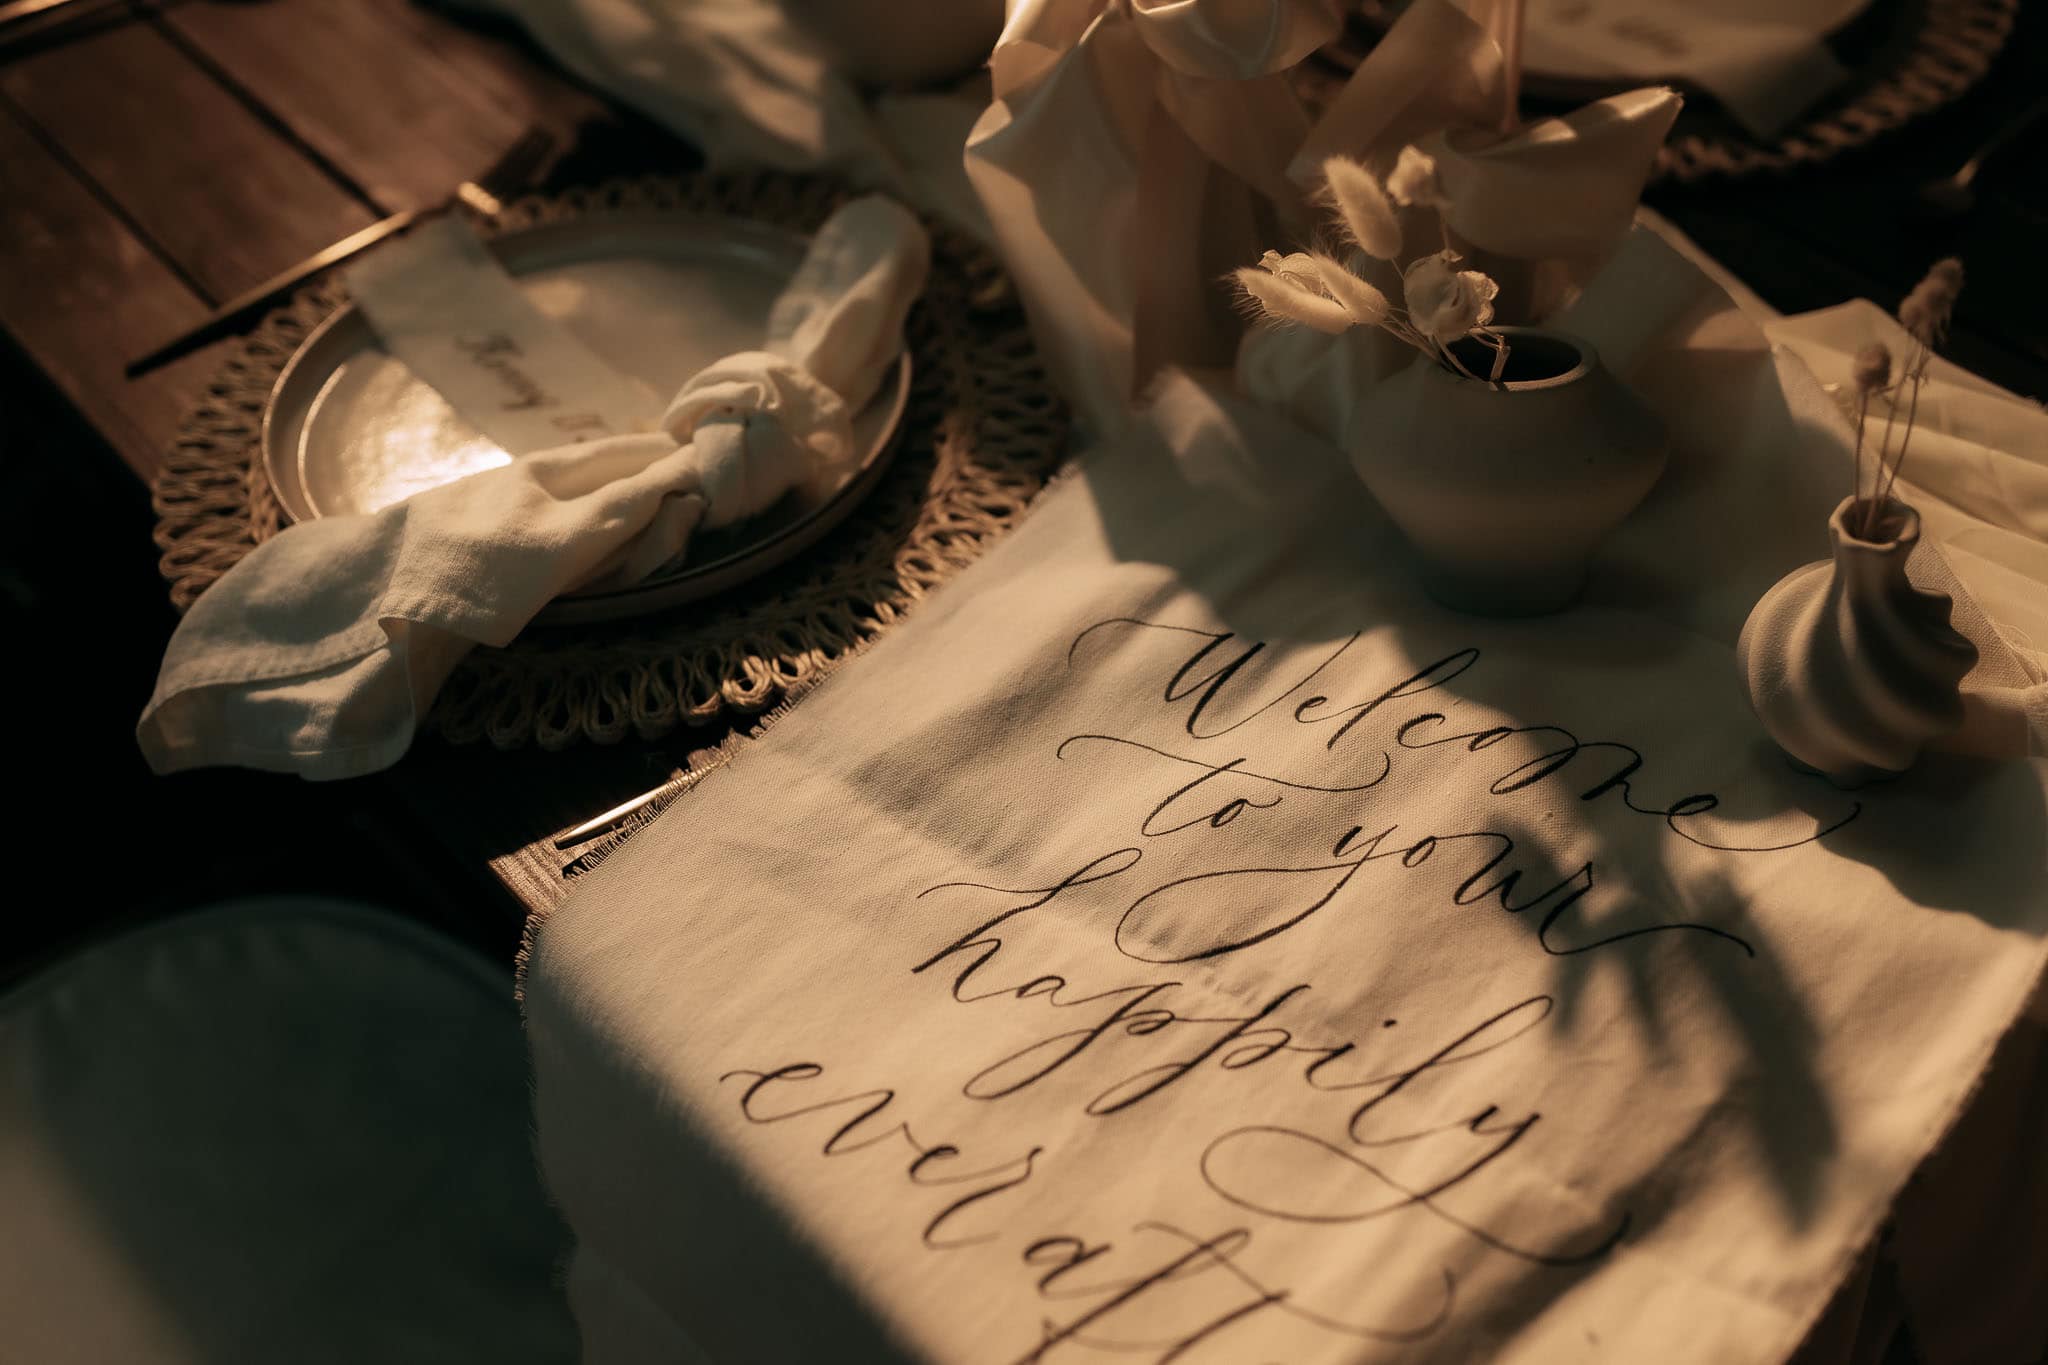 Welcome
to your
happily
ever aft